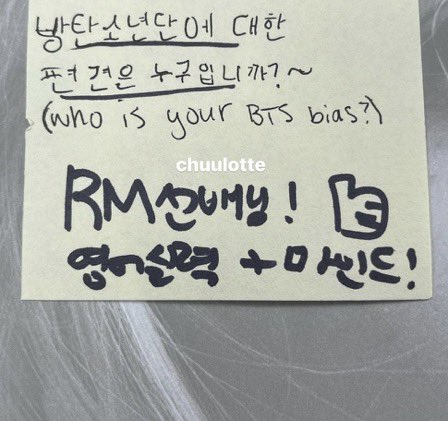 방탄소년단에 대한
편견은 누구입니까?~
(who is your BTS bias?)
chuulotte
RM선배님!
영어실력 + 마인드!